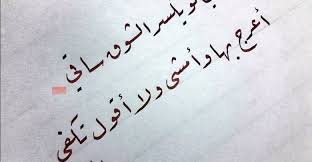 لو يلسر الشوق ساقي
أعرج بها وأمشى ولا أقول تآلفي